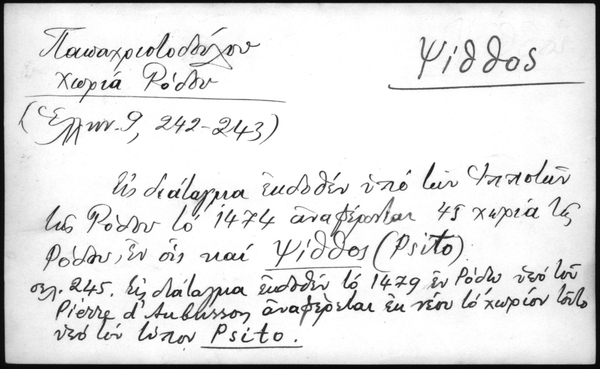 Παπαχριστοδούλου
Χωριά Ρόδου
Ψίθθος
(Ἑλλην. 9, 242-243)
Εἰς διάταγμα ἐκδοθέν ὑπό τῶν Ἱπποτῶν
τῆς Ρόδου τό 1474 ἀναφέρονται 45 χωριά τῆς
Ρόδου, ἐν οἷς καί Ψίθθος (Psito)
σελ. 245. Εἰς διάταγμα ἐκδοθέν τό 1479 ἐν Ρόδῳ ὑπό τοῦ
Pierre d'Aubusson ἀναφέρεται ἐκ νέου τό χωρίον τοῦτο
ὑπό τόν τύπον Psito.